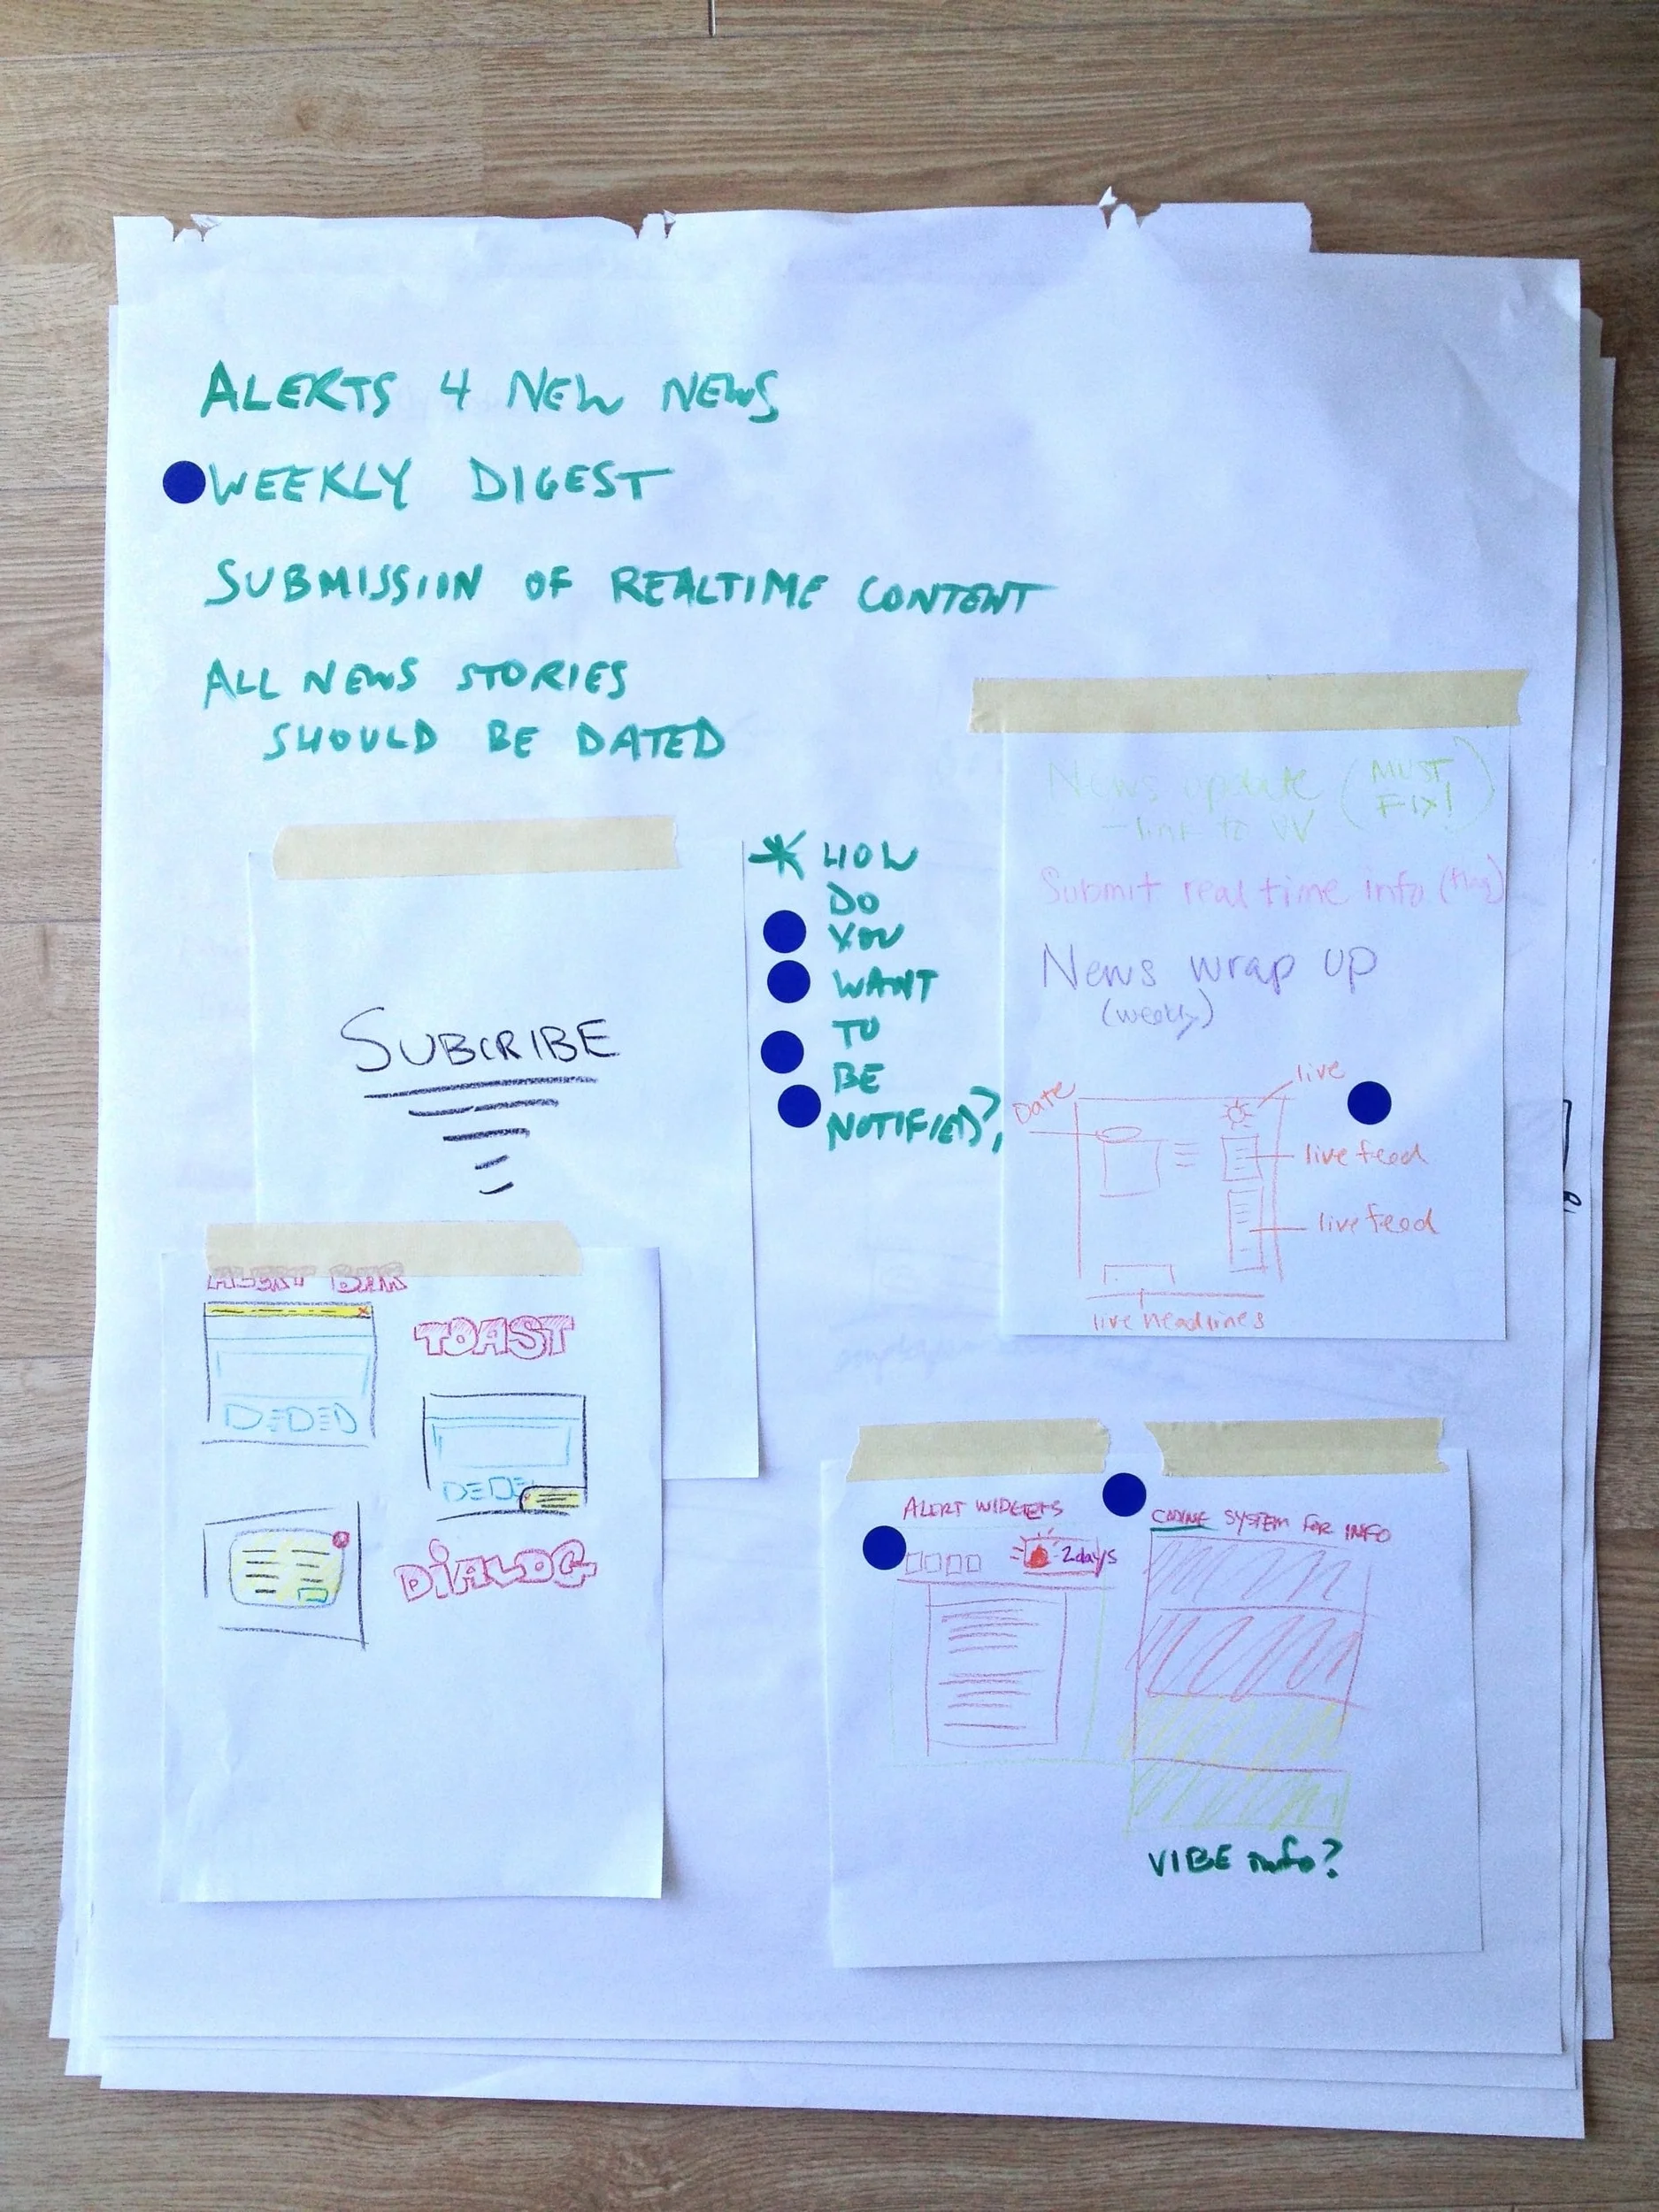 ALERTS 4 NEW NEWS
WEEKLY DIGEST
SUBMISSIIN OF REALTIME CONTENT
ALL NEWS STORIES
SHOULD BE DATED
* HOW
DO
YOU
WANT
TO
BE
NOTIFIED?
SUBCRIBE
News update (MUST
FIX!)
- link to VV
Submit real time info (flag)
News wrap up
(weekly)
Date
live
live feed
live feed
live headlines
ALERT BAR
TOAST
DIALOG
ALERT WIDGETS
2days
CODING SYSTEM FOR INFO
VIBE info?